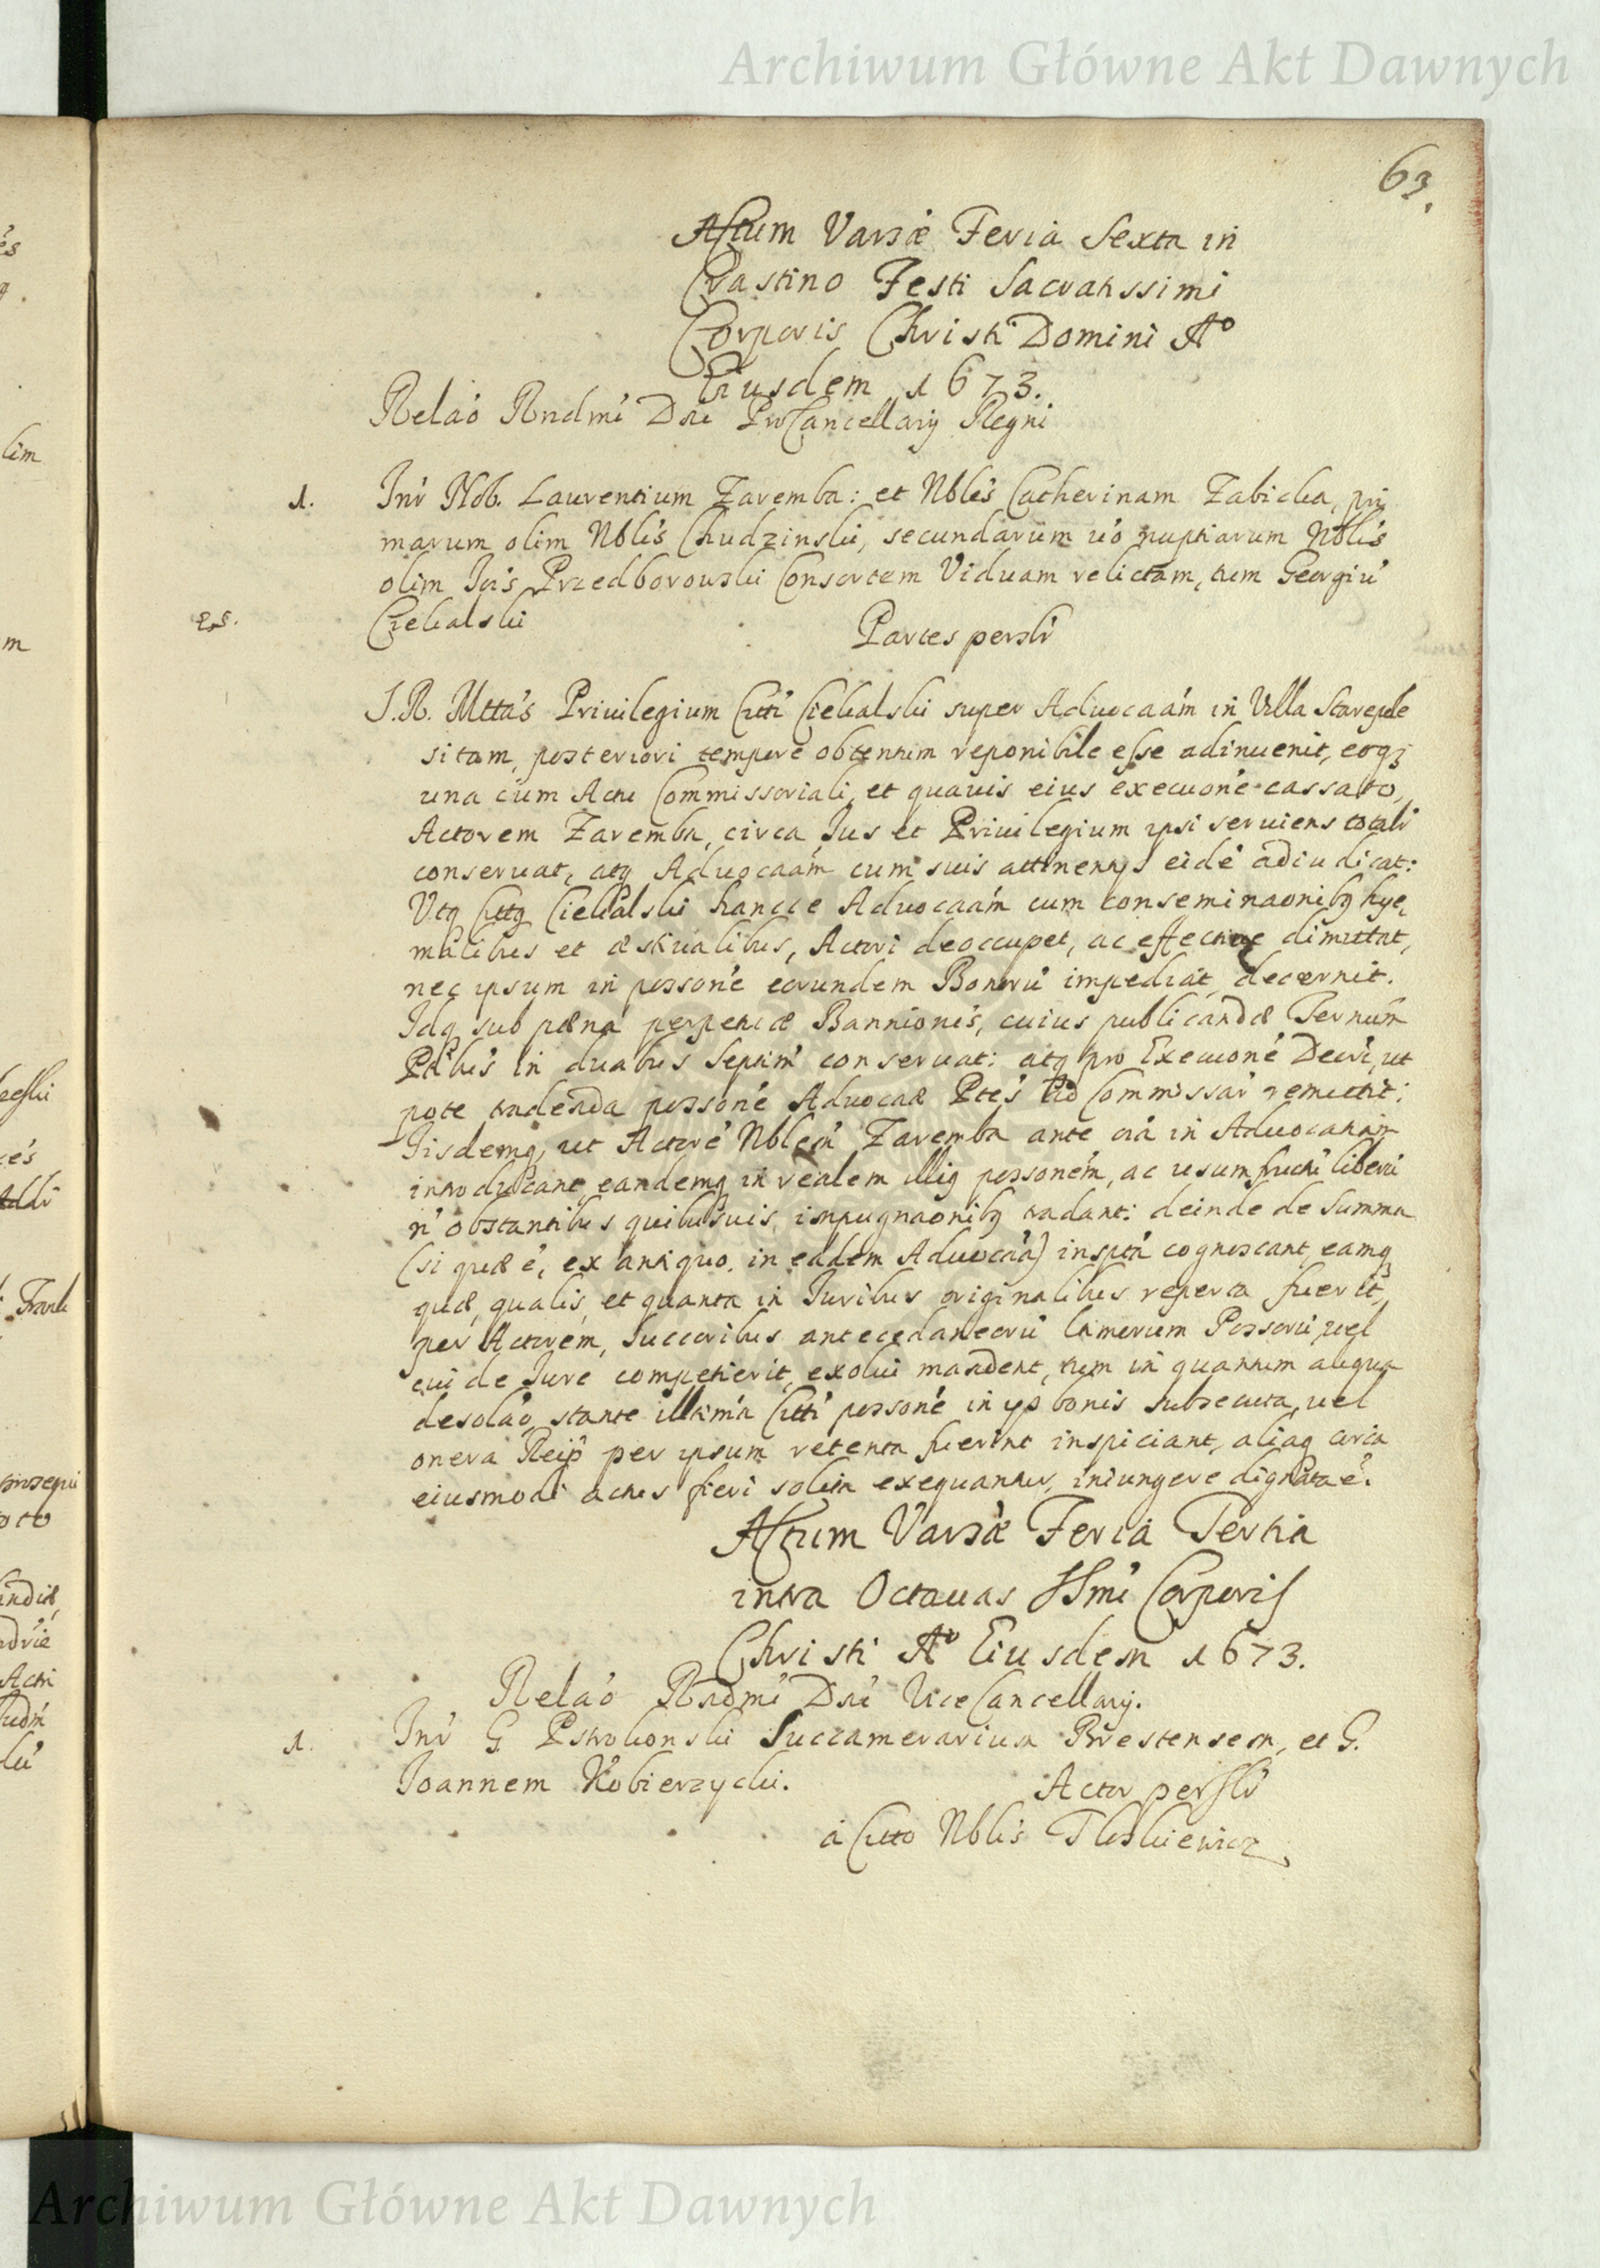 Archiwum Główne Akt Dawnych
63.
Actum Varsæ Feria Sexta in
Crastino Festi Sacratissimi
Corporis Christi Domini Aº
Eiusdem 1673.
Relaó Rndmi Dni ProCancellarij Regni
1. Inr Nob. Laurentium Zaremba: et Nblés Catherinam Zabicka, pri
marum olim Nblis Chudzinski, secundarum uó nuptiarum Nblis
olim Przedborowski Consortem Viduam relictam, tum Georgiu
Ciekalski Partes perslr
S. R. Mttas Priuilegium Citti Ciekalski super Aduocaám in Villa
sitam, posteriori tempore obtentum reponibile esse adinuenit, eoq;
una cum Actu Commissoriali, et quauis eius execuone cassato,
Actorem Zaremba, circa Jus et Priuilegium ipsi seruiens totalr
conseruat, atq Aduocaám cum suis attinentys eidé adiudicat:
Utq Cittq Ciekalski hancce Aduocaám cum conseminaonibq hye,
malibus et æstiualibus, Actori deoccupet, ac effectiue dimittat,
nec ipsum in possoné eorundem Bonoru impediat, decernit.
Idq sub pæna perpetuæ Bannionis, cuius publicandæ Ternum
Ptbus in duabus Septim conseruat: atq pro Execuone Decri, ut
pote tradenda possoné Aduocaæ Ptes ad Commissar remittit:
Iisdemq, ut Actoré Nblem Zaremba ante oia in Aduocaam
introducant, eandemq in realem illiq possoném, ac usumfructu liberu
n obstantibus quibusuis, impugnaonibq tradant: deinde de Summa
(si quæ é, ex antiquo, in eadem Aduocaa) inspta cognoscant, eamq
quæ, qualis, et quanta in Juribus originalibus reperta fuerit,
per Actorem, Succoribus antecedaneoru Possoru, uel
cui de Jure competierit, exolui mandent, tum in quantum aliqua
desolaó, stante illtima Citti possoné in bonis subsecuta, uel
onera Reip per ipsum retenta fuerint inspiciant, aliaq circa
eiusmodi actus fieri solita exequantur, iniungere dignata é.
Actum Varsæ Feria Tertia
intra Octauas SSmi Corporis
Christi Aº Eiusdem 1673.
Relaó Rndmi Dni ViceCancellarij.
1. Inr G. Pstrokonski Succamerarium Brestensem, et G.
Joannem Kobierzycki. Actor perslr
á Citto Nblis
Archiwum Główne Akt Dawnych